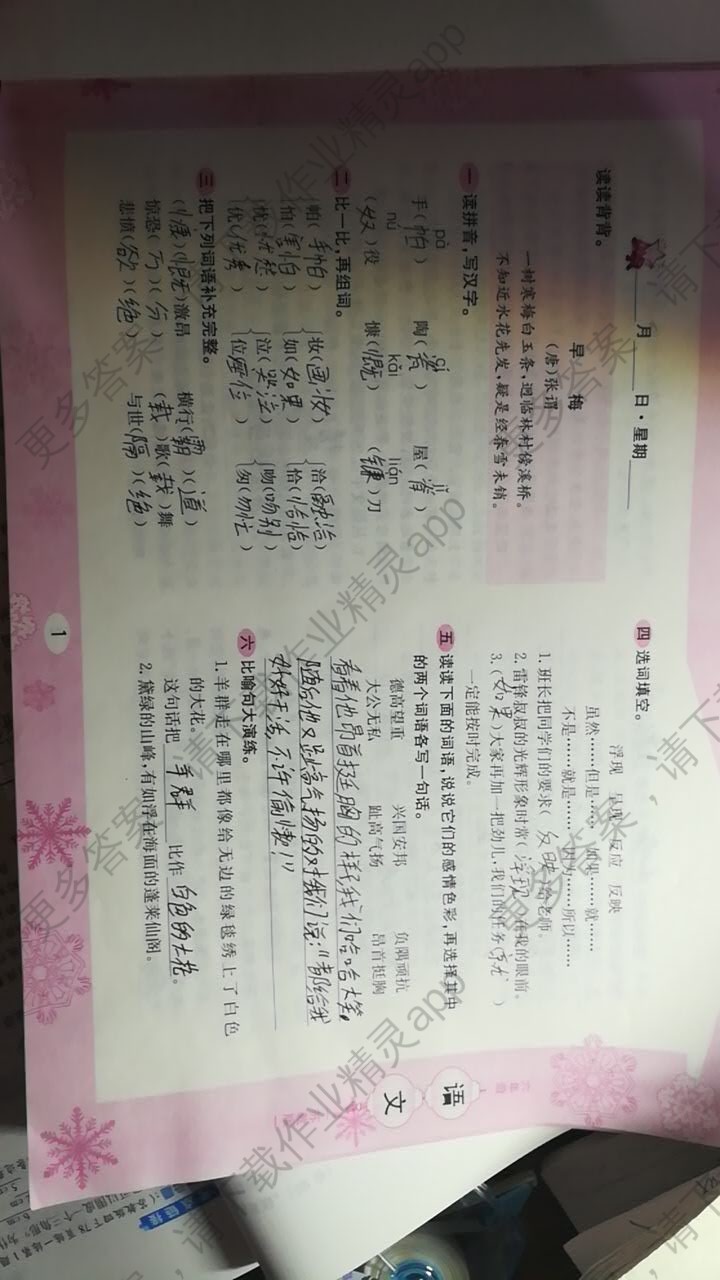 ____月____日·星期____
读读背背。
早 梅
(唐)张谓
一树寒梅白玉条，迥临林村傍溪桥。
不知近水花先发，疑是经春雪未销。
一 读拼音，写汉字。
pà
手(帕) 陶( ) 屋( )
nú kǎi lián
(奴)役 慷(慨) (镰)刀
二 比一比，再组词。
帕(手帕) 妆(画妆) 洽(融洽)
怕(害怕) 如(如果) 恰(恰恰)
忧(忧愁) 泣(哭泣) 吻(吻别)
优(优秀) 位(座位) 匆(匆忙)
三 把下列词语补充完整。
(慷)(慨)激昂 横行(霸)(道)
惊恐(万)(分) (载)歌(载)舞
悲愤(欲)(绝) 与世(隔)(绝)
四 选词填空。
浮现 呈现 反应 反映
虽然……但是…… 如果……就……
不是……就是…… 因为……所以……
1. 班长把同学们的要求(反映)给老师。
2. 雷锋叔叔的光辉形象时常(浮现)在我的眼前。
3. (如果)大家再加一把劲儿，我们的任务(就)
一定能按时完成。
五 读读下面的词语，说说它们的感情色彩，再选择其中
的两个词语各写一句话。
德高望重 兴国安邦 负隅顽抗
大公无私 趾高气扬 昂首挺胸
看着他昂首挺胸的样子我们哈哈大笑，
随后他又趾高气扬的对我们说："都给我
好好干活，不许偷懒！"
六 比喻句大演练。
1. 羊群走在哪里都像给无边的绿毯绣上了白色
的大花。
这句话把 羊群 比作 白色的大花。
2. 黛绿的山峰，有如浮在海面的蓬莱仙阁。
1
语
文
更多答案，请下载作业精灵app